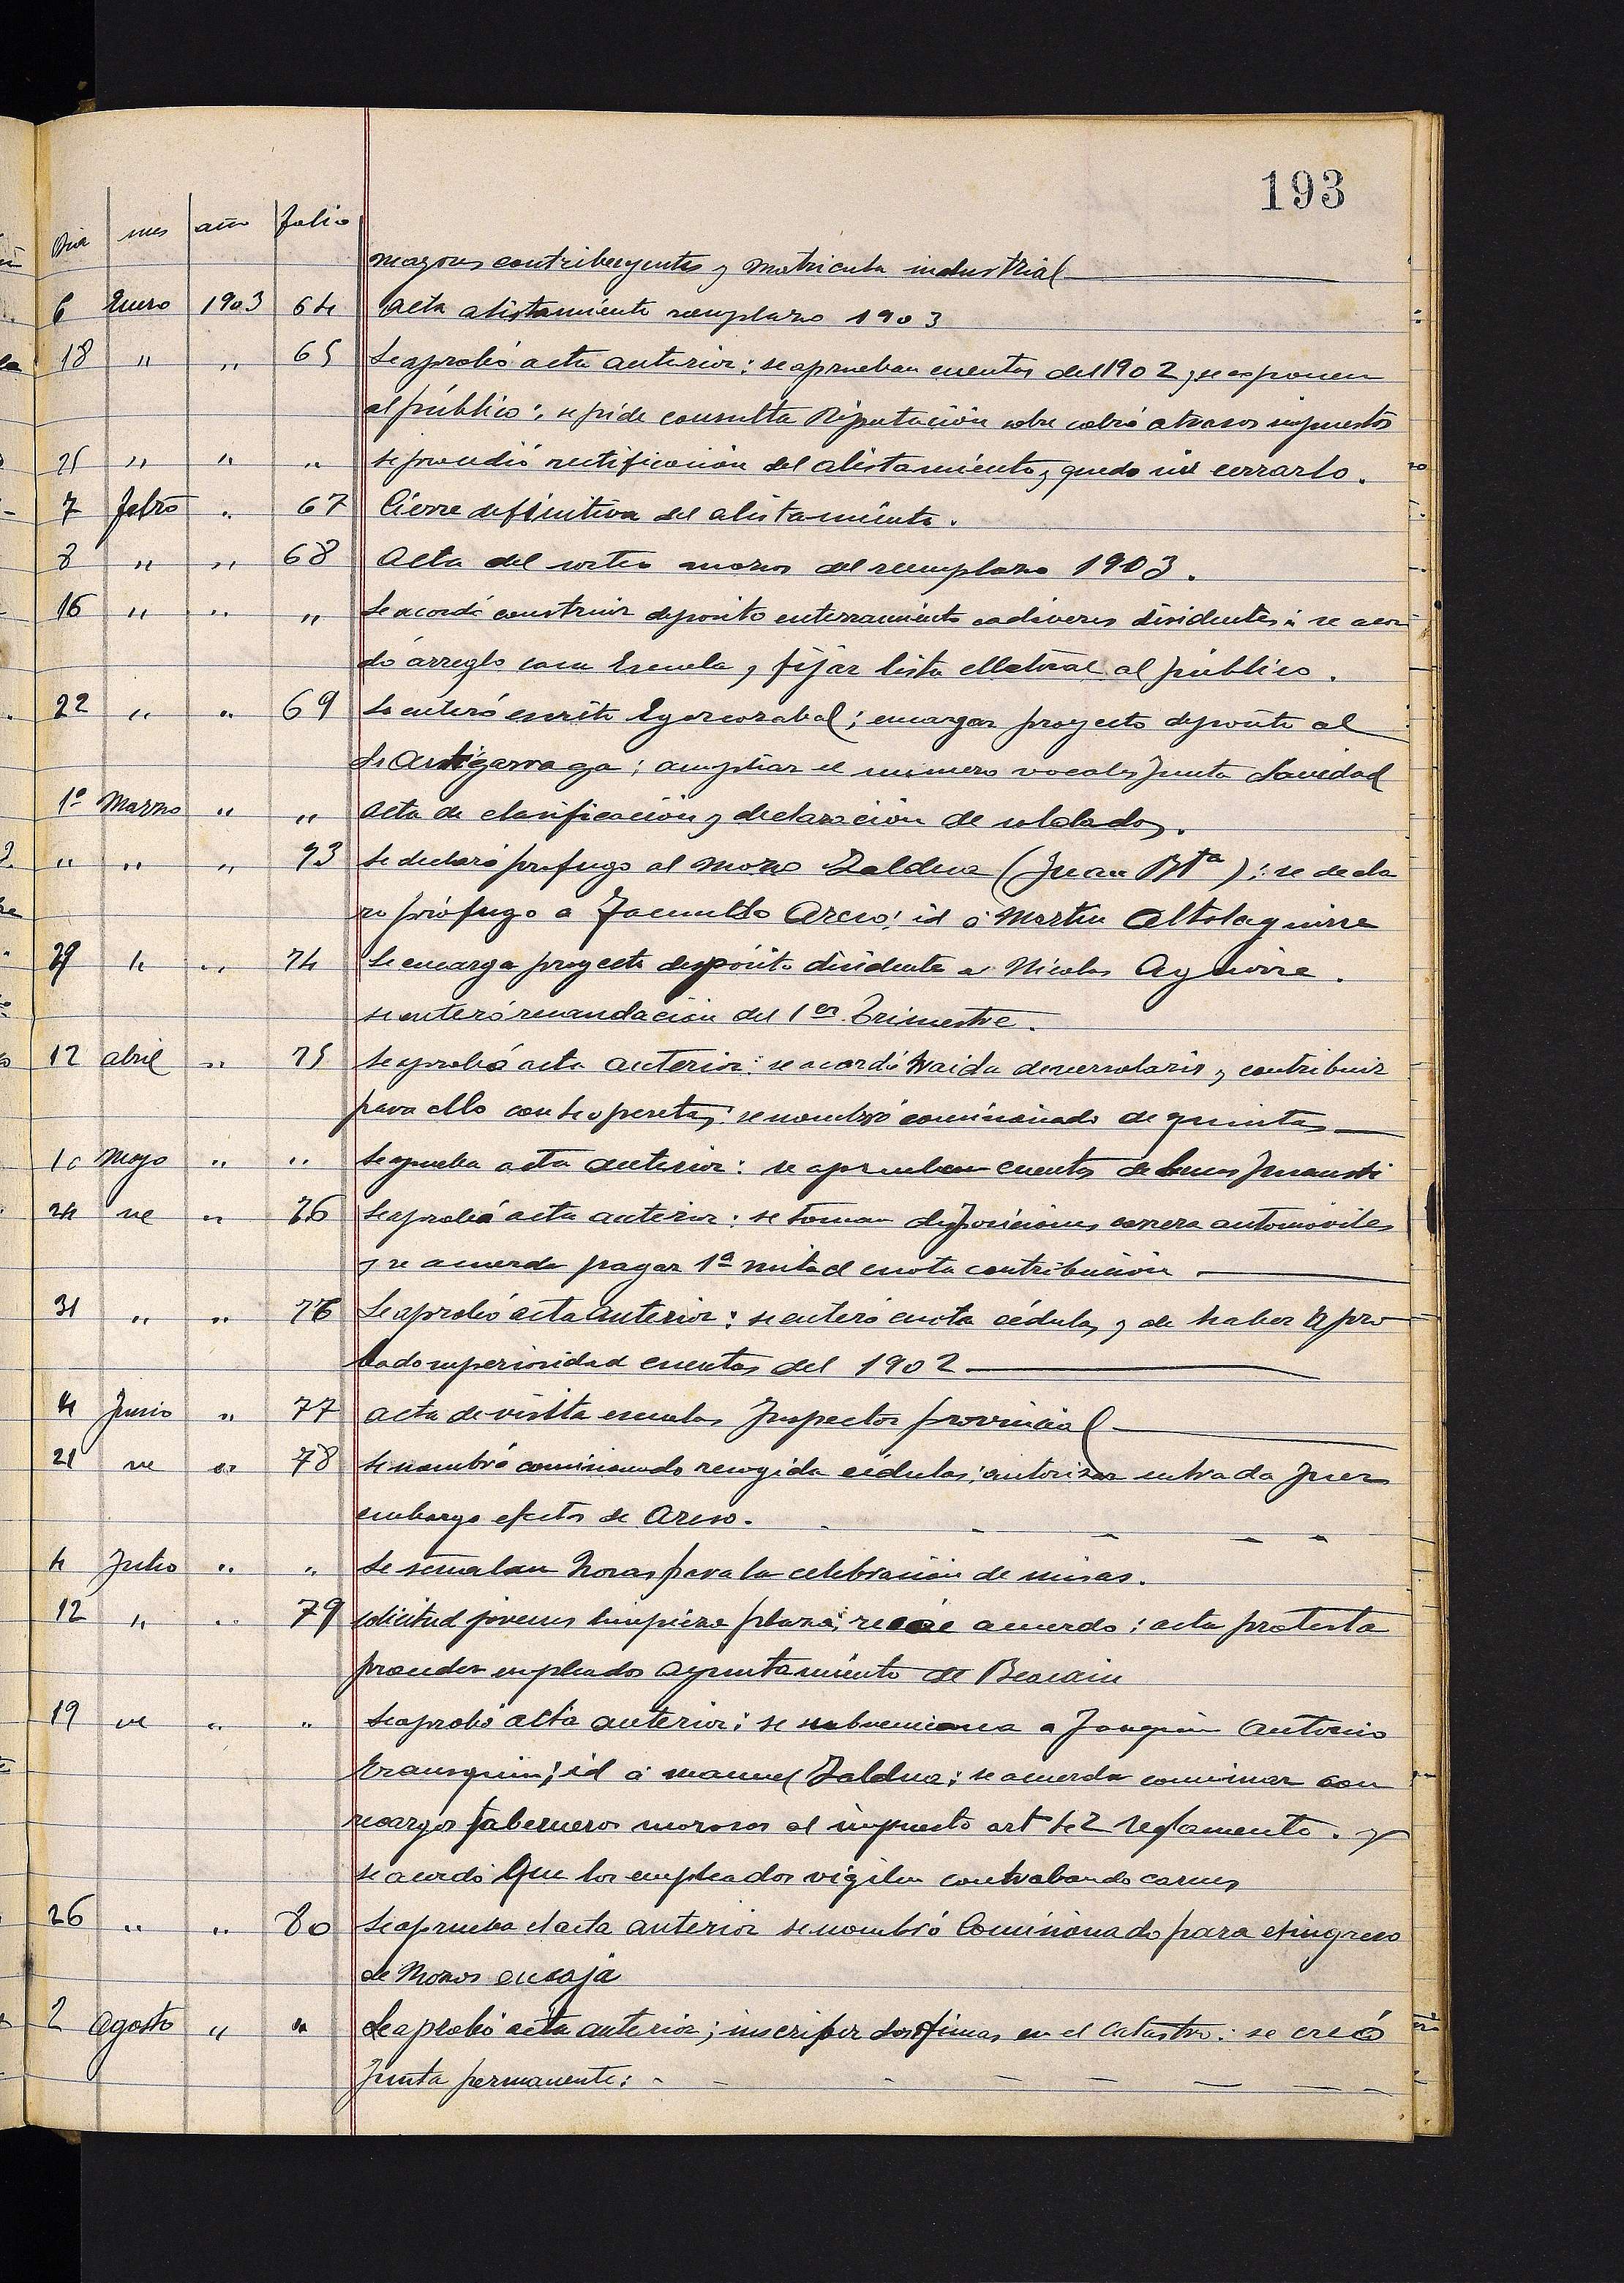 193
Dia mes año Folio
mayores contribuyentes y matricula industrial
6 Enero 1903 64 Acta alistamiento reemplazo 1903
18 " " 65 Se aprobó acta anterior: se aprueban cuentas del 1902 y se exponen
al público: se pide consulta Diputación sobre cobro atrasos impuestos
25 " " " se procedió rectificación del alistamiento y quedo sin cerrarlo.
7 Febro " 67 Cierre definitivo del alistamiento.
8 " " 68 Acta del sorteo mozos del reemplazo 1903.
16 " " " Se acordó construir deposito enterramiento cadáveres disidentes: se acor
dó arreglo casa Escuela y fijar lista electoral al público.
22 " " 69 Se enteró escrito Egorcozabal; encargar proyecto deposito al
Sr Astigarraga; ampliar el numero vocales Junta Sanidad
1º Marzo " " Acta de clasificación y declaracion de soldados.
" " " 73 Se declaró profugo al mozo Zaldua (Juan Bta): se decla
ro prófugo a Facundo Arcos: id á Martin Altolaguirre
29 " " 74 Se encarga proyecto depósito disidente a Nicolas Aguirre.
se enteró recaudacion del 1er Trimestre.
12 abril " 75 Se aprobó acta anterior: se acordó traida de versolaris y contribuir
para ello con 40 pesetas: se nombró comisionado de quintas
10 Mayo " " Se aprueba acta anterior: se aprueban cuentas de
24 " " 76 Se aprobó acta anterior: se toman disposiciones carrera automóviles
y se acuerda pagar 1ª mitad cuota contribución
31 " " 76 Se aprobó acta anterior: se enteró cuota cédulas y de haber apro
bado superioridad cuentas del 1902
4 Junio " 77 acta de visita escuelas Inspector provincial
21 " " 78 Se nombró comisionado recogida cédulas: autorizar entrada Juez
embargo efectos de Arcos.
4 Julio " " Se señalan horas para la celebración de misas.
12 " " 79 solicitud jóvenes limpieza plaza: recáe acuerdo: acta protesta
proceder empleados ayuntamiento de Beasain
19 " " " Se aprobó acta anterior: se subvenciona a Joaquin Antonio
Erausquin; id á manuel Zaldua: se acuerda conminar con
recargos taberneros morosos al impuesto art 42 reglamento. y
se acordó que los empleados vigilen contrabando carnes
26 " " 80 Se aprueba el acta anterior se nombró Comisionado para el ingreso
de Mozos en caja
2 agosto " " Se aprobó acta anterior; inscribir dos fincas en el Catastro: se creó
Junta permanente: